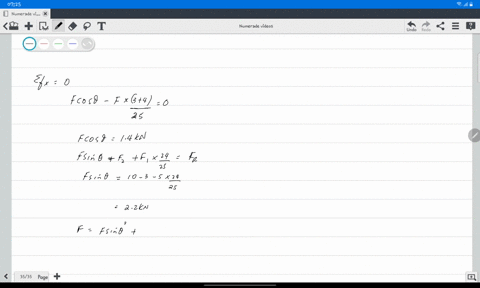 09:25
Numerade vi...
Numerade videos
Undo
Redo
Σfx = 0
Fcosθ - F × (3+4)/25 = 0
Fcosθ = 1.4kN
Fsinθ + F₂ + F₁ × 24/25 = FR
Fsinθ = 10 - 3 - 5 × 24/25
= 2.2kN
F = Fsinθ² +
Page